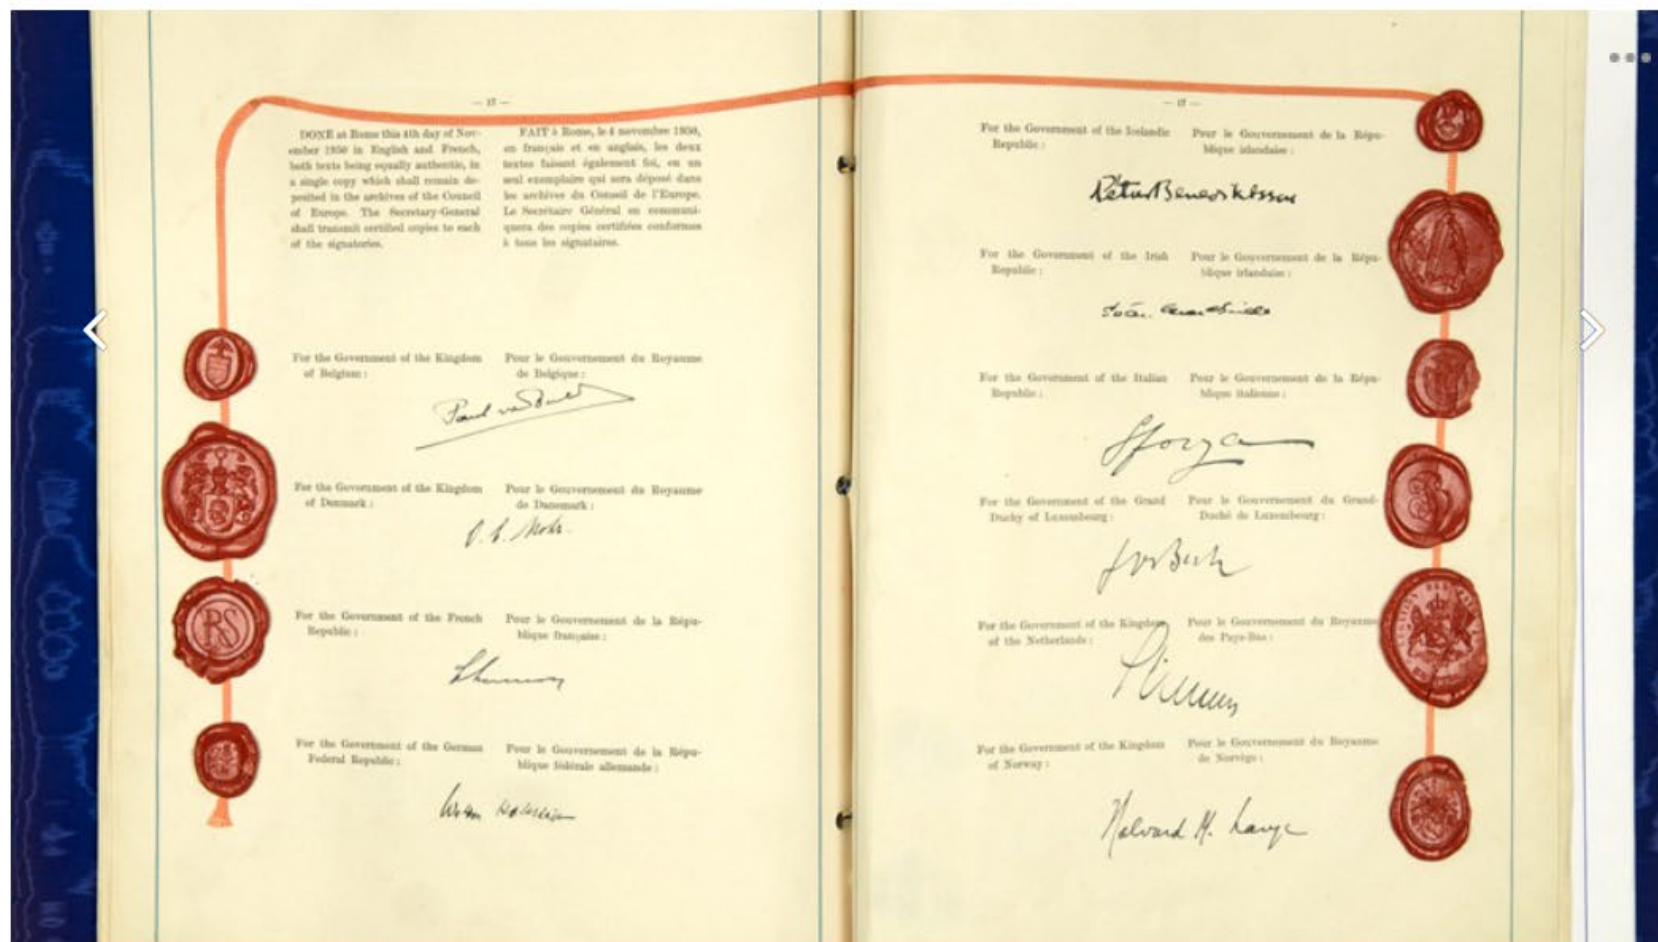 — 17 —
DONE at Rome this 4th day of Nov-
ember 1950 in English and French,
both texts being equally authentic, in
a single copy which shall remain de-
posited in the archives of the Council
of Europe. The Secretary-General
shall transmit certified copies to each
of the signatories.
FAIT à Rome, le 4 novembre 1950,
en français et en anglais, les deux
textes faisant également foi, en un
seul exemplaire qui sera déposé dans
les archives du Conseil de l'Europe.
Le Secrétaire Général en communi-
quera des copies certifiées conformes
à tous les signataires.
For the Government of the Kingdom
of Belgium :
Pour le Gouvernement du Royaume
de Belgique :
Paul van
For the Government of the Kingdom
of Denmark :
Pour le Gouvernement du Royaume
de Danemark :
Mohr.
RS
For the Government of the French
Republic :
Pour le Gouvernement de la Répu-
blique française :
For the Government of the German
Federal Republic :
Pour le Gouvernement de la Répu-
blique fédérale allemande :
For the Government of the Icelandic
Republic :
Pour le Gouvernement de la Répu-
blique islandaise :
Pétur Benediktsson
For the Government of the Irish
Republic :
Pour le Gouvernement de la Répu-
blique irlandaise :
For the Government of the Italian
Republic :
Pour le Gouvernement de la Répu-
blique italienne :
Sforza
For the Government of the Grand
Duchy of Luxembourg :
Pour le Gouvernement du Grand-
Duché de Luxembourg :
Jos Bech
For the Government of the Kingdom
of the Netherlands :
Pour le Gouvernement du Royaume
des Pays-Bas :
For the Government of the Kingdom
of Norway :
Pour le Gouvernement du Royaume
de Norvège :
Halvard M. Lange